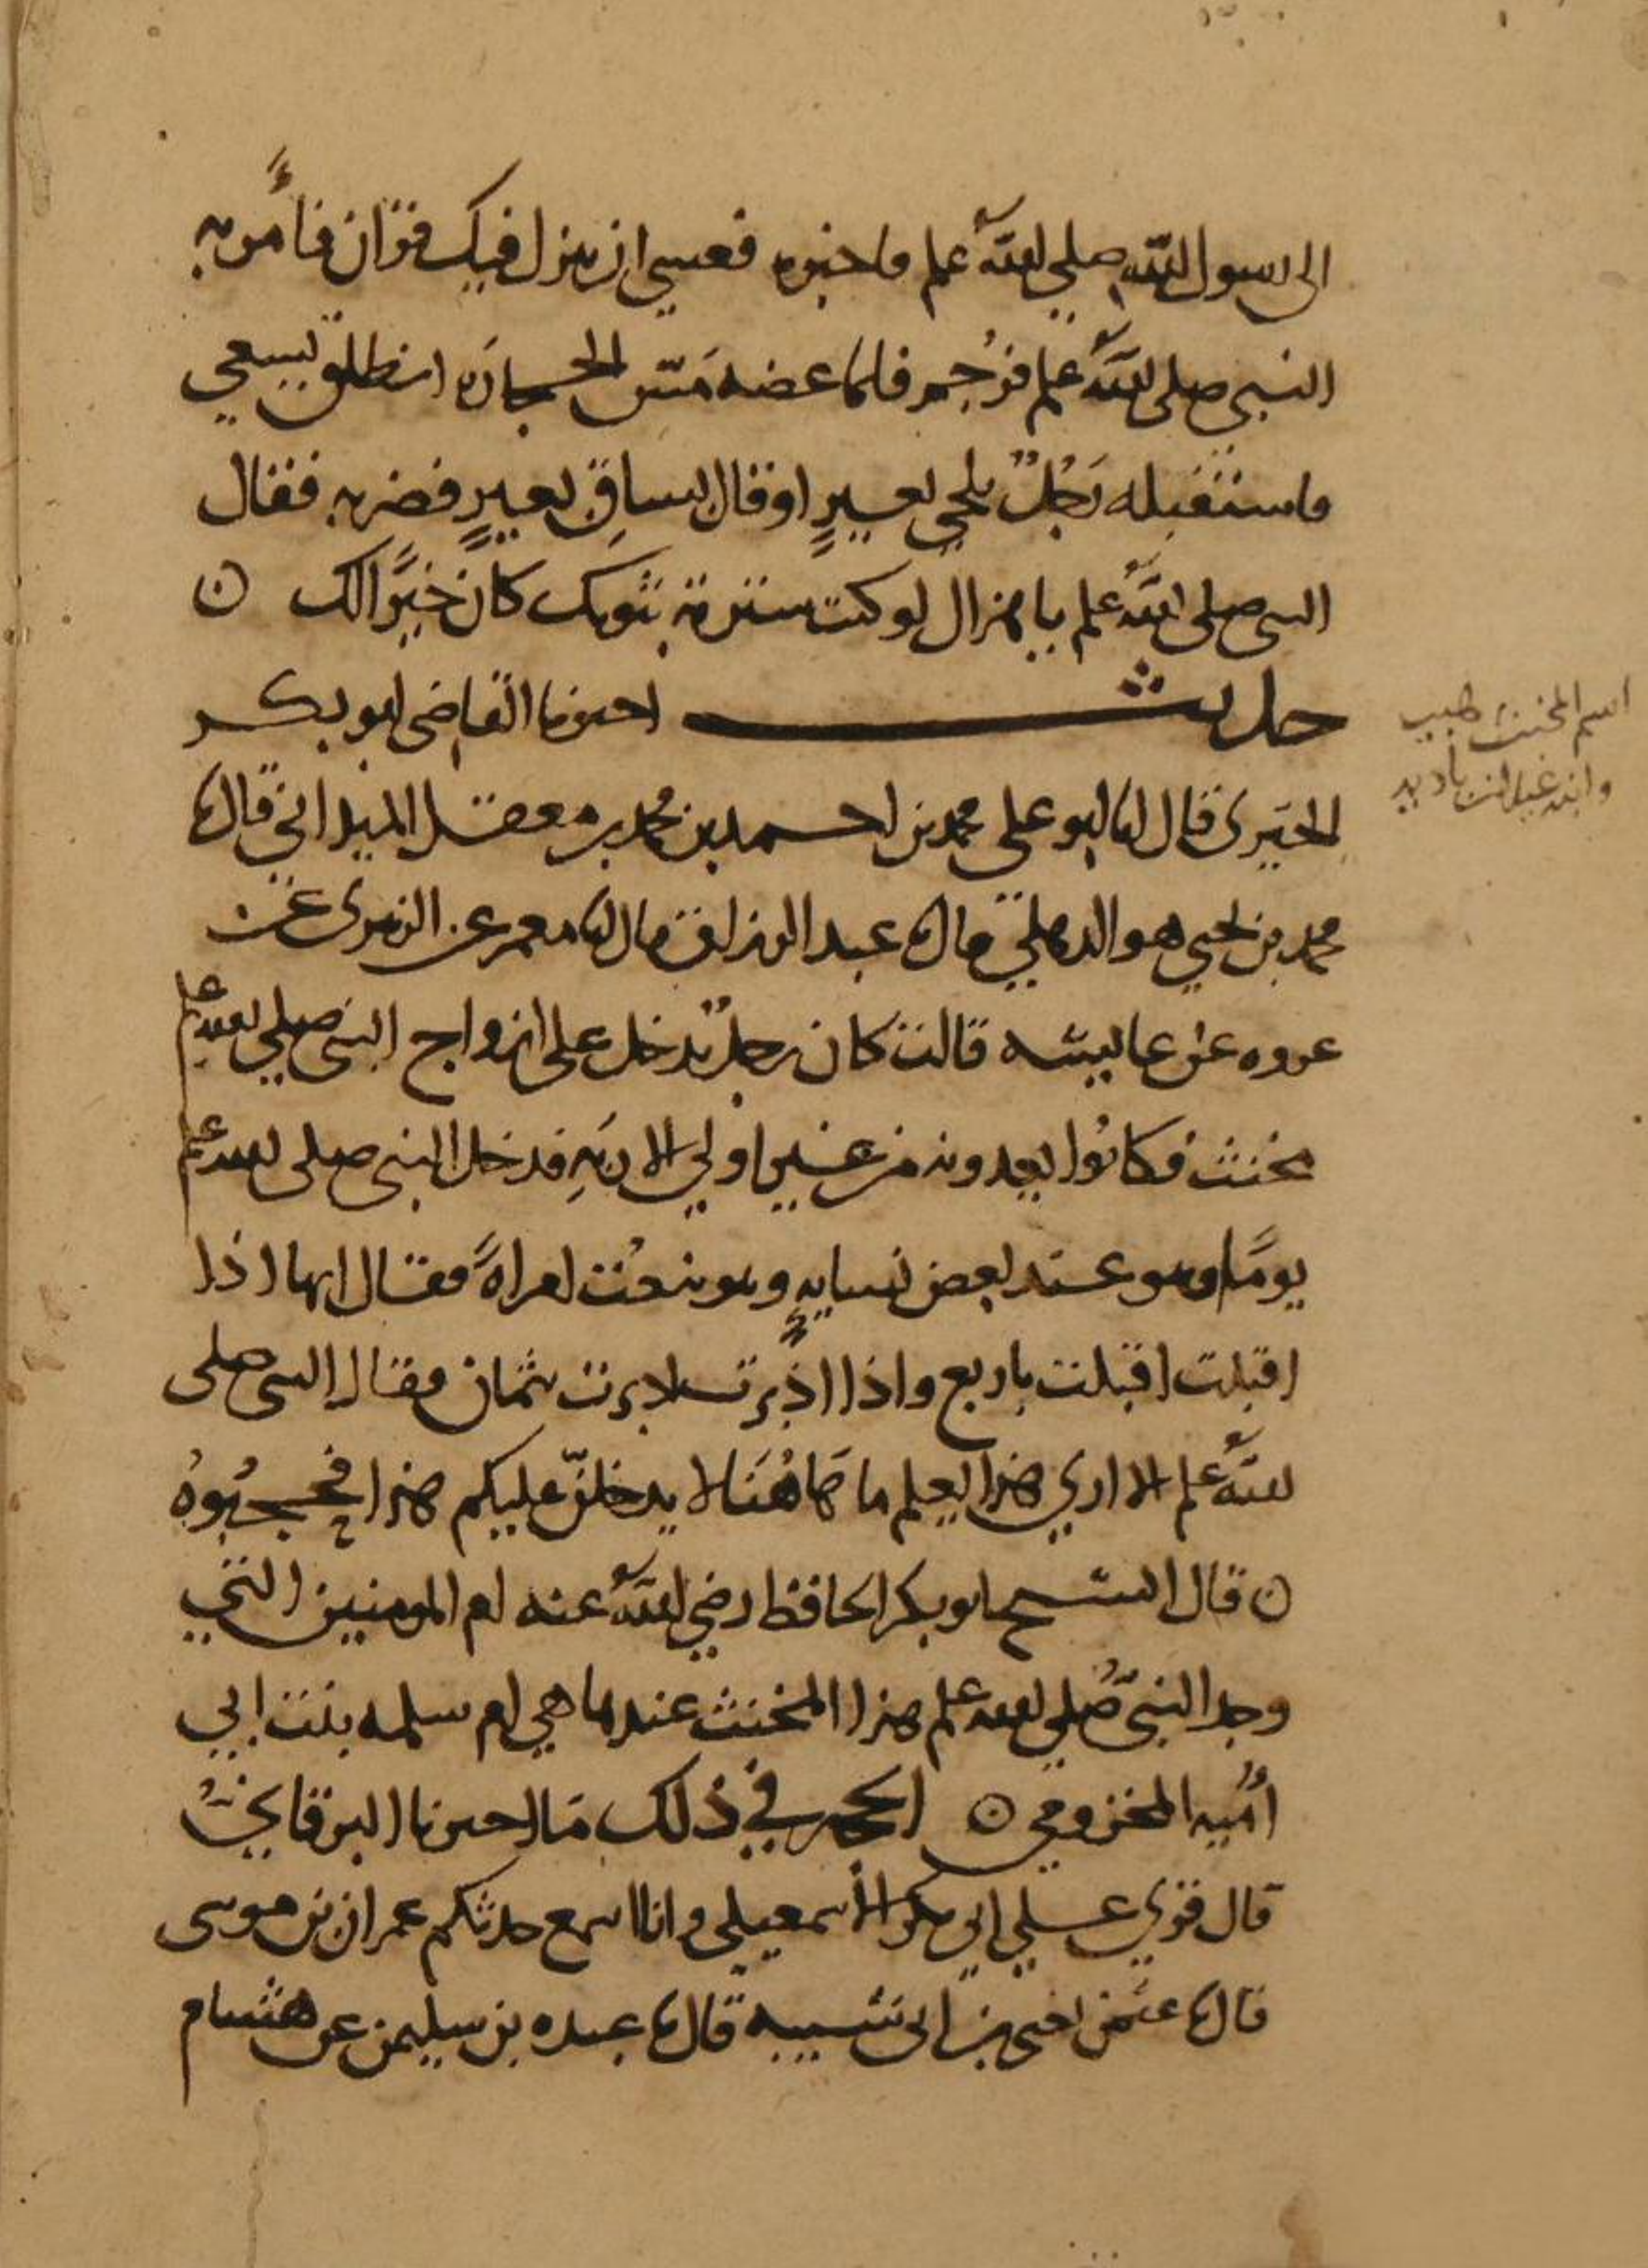 الى رسول الله صلى الله علم فاخبره فعسى ان ينزل فيك قرآن فأمر به
النبي صلى الله علم فرُجم فلما عضه مَسّ الحجارة انطلق يسعى
فاستقبله رَجُلٌ بلحي بعيرٍ او قال بساقِ بعيرٍ فضربه فقال
النبي صلى الله علم يا هزال لو كنت سترته بثوبك كان خيرًا لك ه
حديث اخبرنا القاضي ابو بكر
الحِيَري قال انا ابو علي محمد بن احمد بن محمد بن معقل الميداني قال نا
محمد بن يحيى هو الذهلي قال نا عبد الرزاق قال انا معمر عن الزهري عن
عروه عن عايشه قالت كان رجلٌ يدخل على ازواج النبي صلى الله علم
مخنث فكانوا يعدونه من غير اولي الاربَهِ فدخل النبي صلى الله علم
يومًا وهو عند بعض نسايهِ وهو ينعُت امراةً فقال انها اذا
اقبلت اقبلت باربع واذا ادبرت ادبرت بثمان فقال النبي صلى
الله علم الا اري هذا يعلم ما هَاهُنَا لا يدخلنّ عليكم هذا فحجبُوهُ
ه قال الشيخ ابو بكر الحافظ رضي الله عنه ام المومنين التي
وجد النبيّ صلى الله علم هذا المخنث عندها هي ام سلمه بنت ابي
أُميه المخزومي ه الحجه في ذلك ما اخبرنا البرقانيُّ
قال قري علي ابي بكر الأسمعيلي وانا اسمع حدثكم عمران بن موسى
قال نا عثمن اخى بن ابى شيبه قال نا عبده بن سليمن عن هشام
اسم المخنث هيب
وابنه غيلان بادية